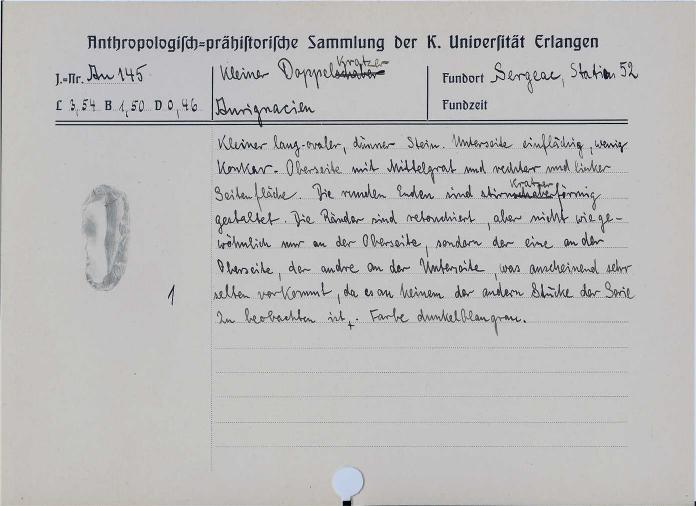 Anthropologisch=prähistorische Sammlung der K. Universität Erlangen
J.=Nr. Au 145
Kratzer
Kleiner Doppelschaber
Fundort Sergeac, Station 52
L 3,54 B 1,50 D 0,46
Aurignacien
Fundzeit
Kleiner lang-ovaler, dünner Stein. Unterseite einflächig, wenig
konkav. Oberseite mit Mittelgrat und rechter und linker
Seitenfläche. Die runden Enden sind stirnschaberförmig
Kratzer
gestaltet. Die Ränder sind retouchiert, aber nicht wie ge-
wöhnlich nur an der Oberseite, sondern der eine an der
Oberseite, der andre an der Unterseite, was anscheinend sehr
selten vorkommt, da es an keinem der andern Stücke der Serie
zu beobachten ist. Farbe dunkelblaugrau.
1